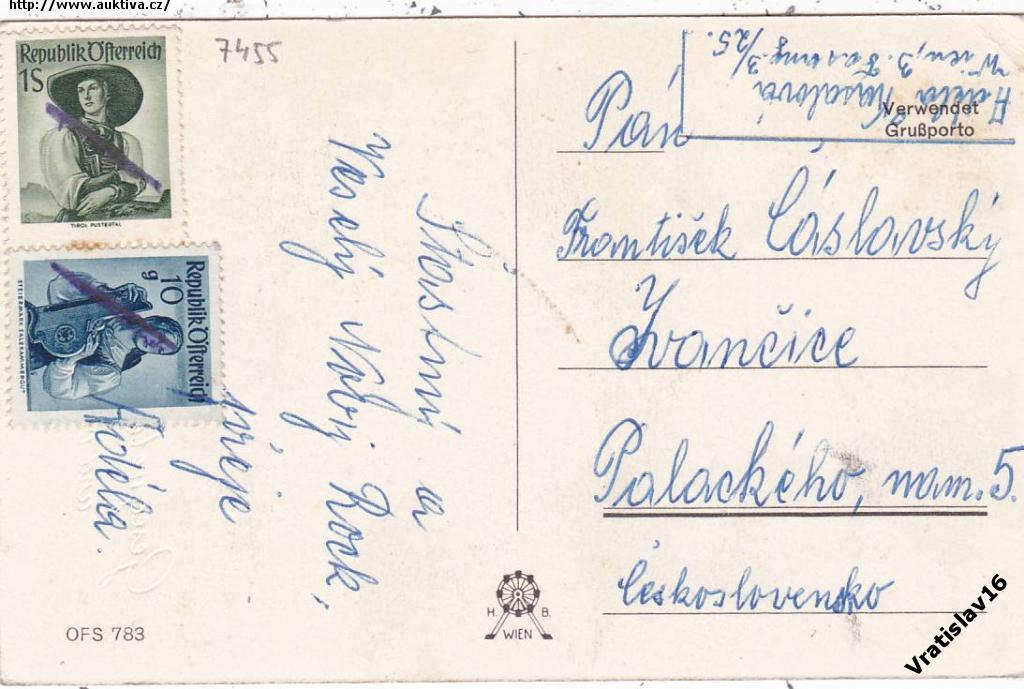 http://www.auktiva.cz/
Republik Österreich
1S
TIROL PUSTERTAL
Republik Österreich
10
g
STEIERMARK SALZKAMMERGUT
7455
Šťastný a
Veselý Nový Rock,
přeje
Adéla.
OFS 783
H. B.
WIEN
Adéla
Wien, 3.
3/25.
Verwendet
Grußporto
Pán
František Čáslavský
Ivančice
Palackého, nam. 5.
Československo
Vratislav16